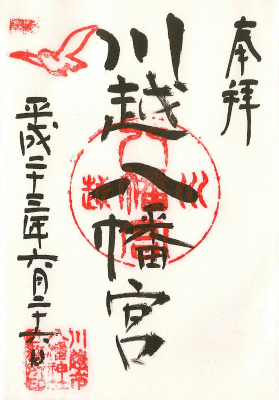 奉拝
川越八幡宮
平成二十三年六月二十六日
川越市
八幡神社